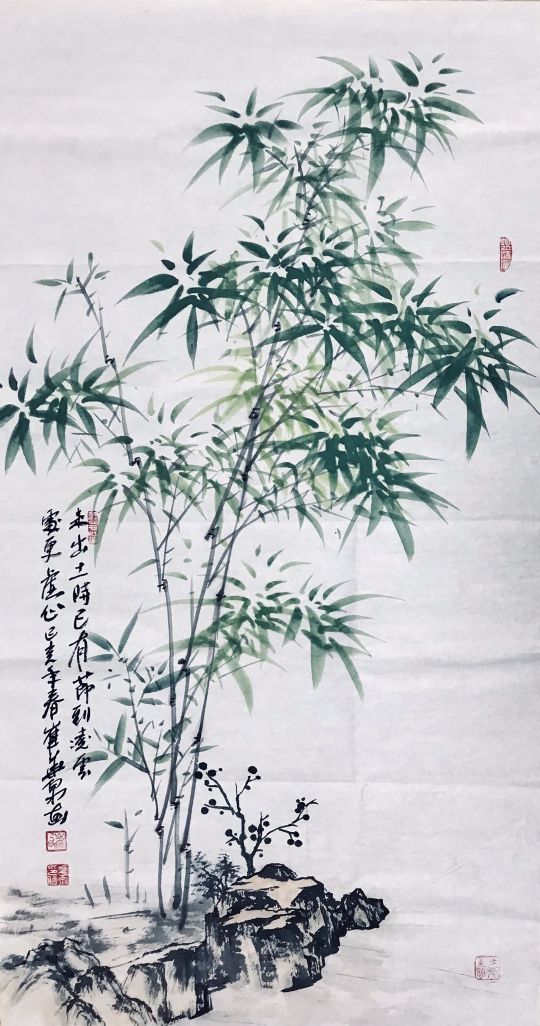 未出土時已有节到凌雲
處更虛心己亥年春崔